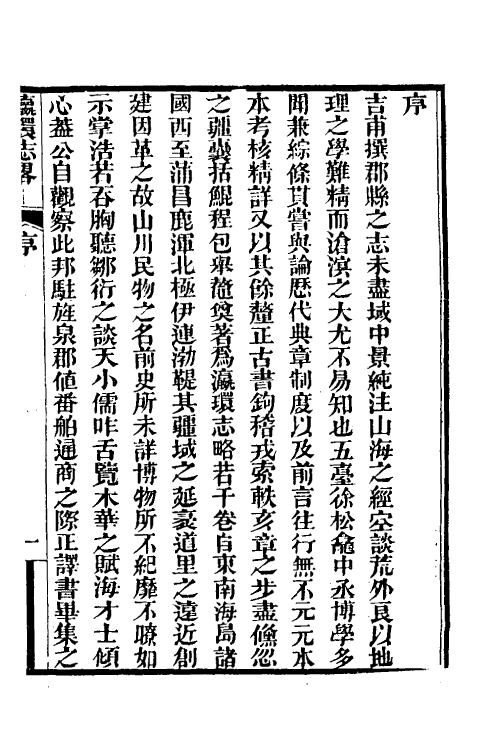 序
吉甫撰郡縣之志未盡域中景純注山海之經空談荒外良以地
理之學難精而滄溟之大尤不易知也五臺徐松龕中丞博學多
聞兼綜條貫嘗與論歷代典章制度以及前言往行無不元元本
本考核精詳又以其餘釐正古書鉤稽戎索軼亥章之步盡儵忽
之疆囊括鯤程包舉鼇奠著爲瀛環志略若干卷自東南海島諸
國西至蒲昌鹿渾北極伊連渤鞮其疆域之延袤道里之遠近創
建因革之故山川民物之名前史所未詳博物所不紀靡不瞭如
示掌浩若吞胸聽鄒衍之談天小儒咋舌覽木華之賦海才士傾
心蓋公自觀察此邦駐旌泉郡値番舶通商之際正譯書畢集之
瀛環志畧 序 一